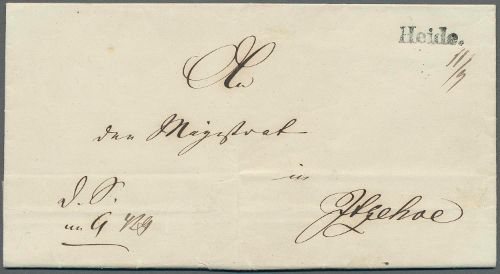 Heide.
11/9
An
den Magistrat
in
Itzehoe
d. S.